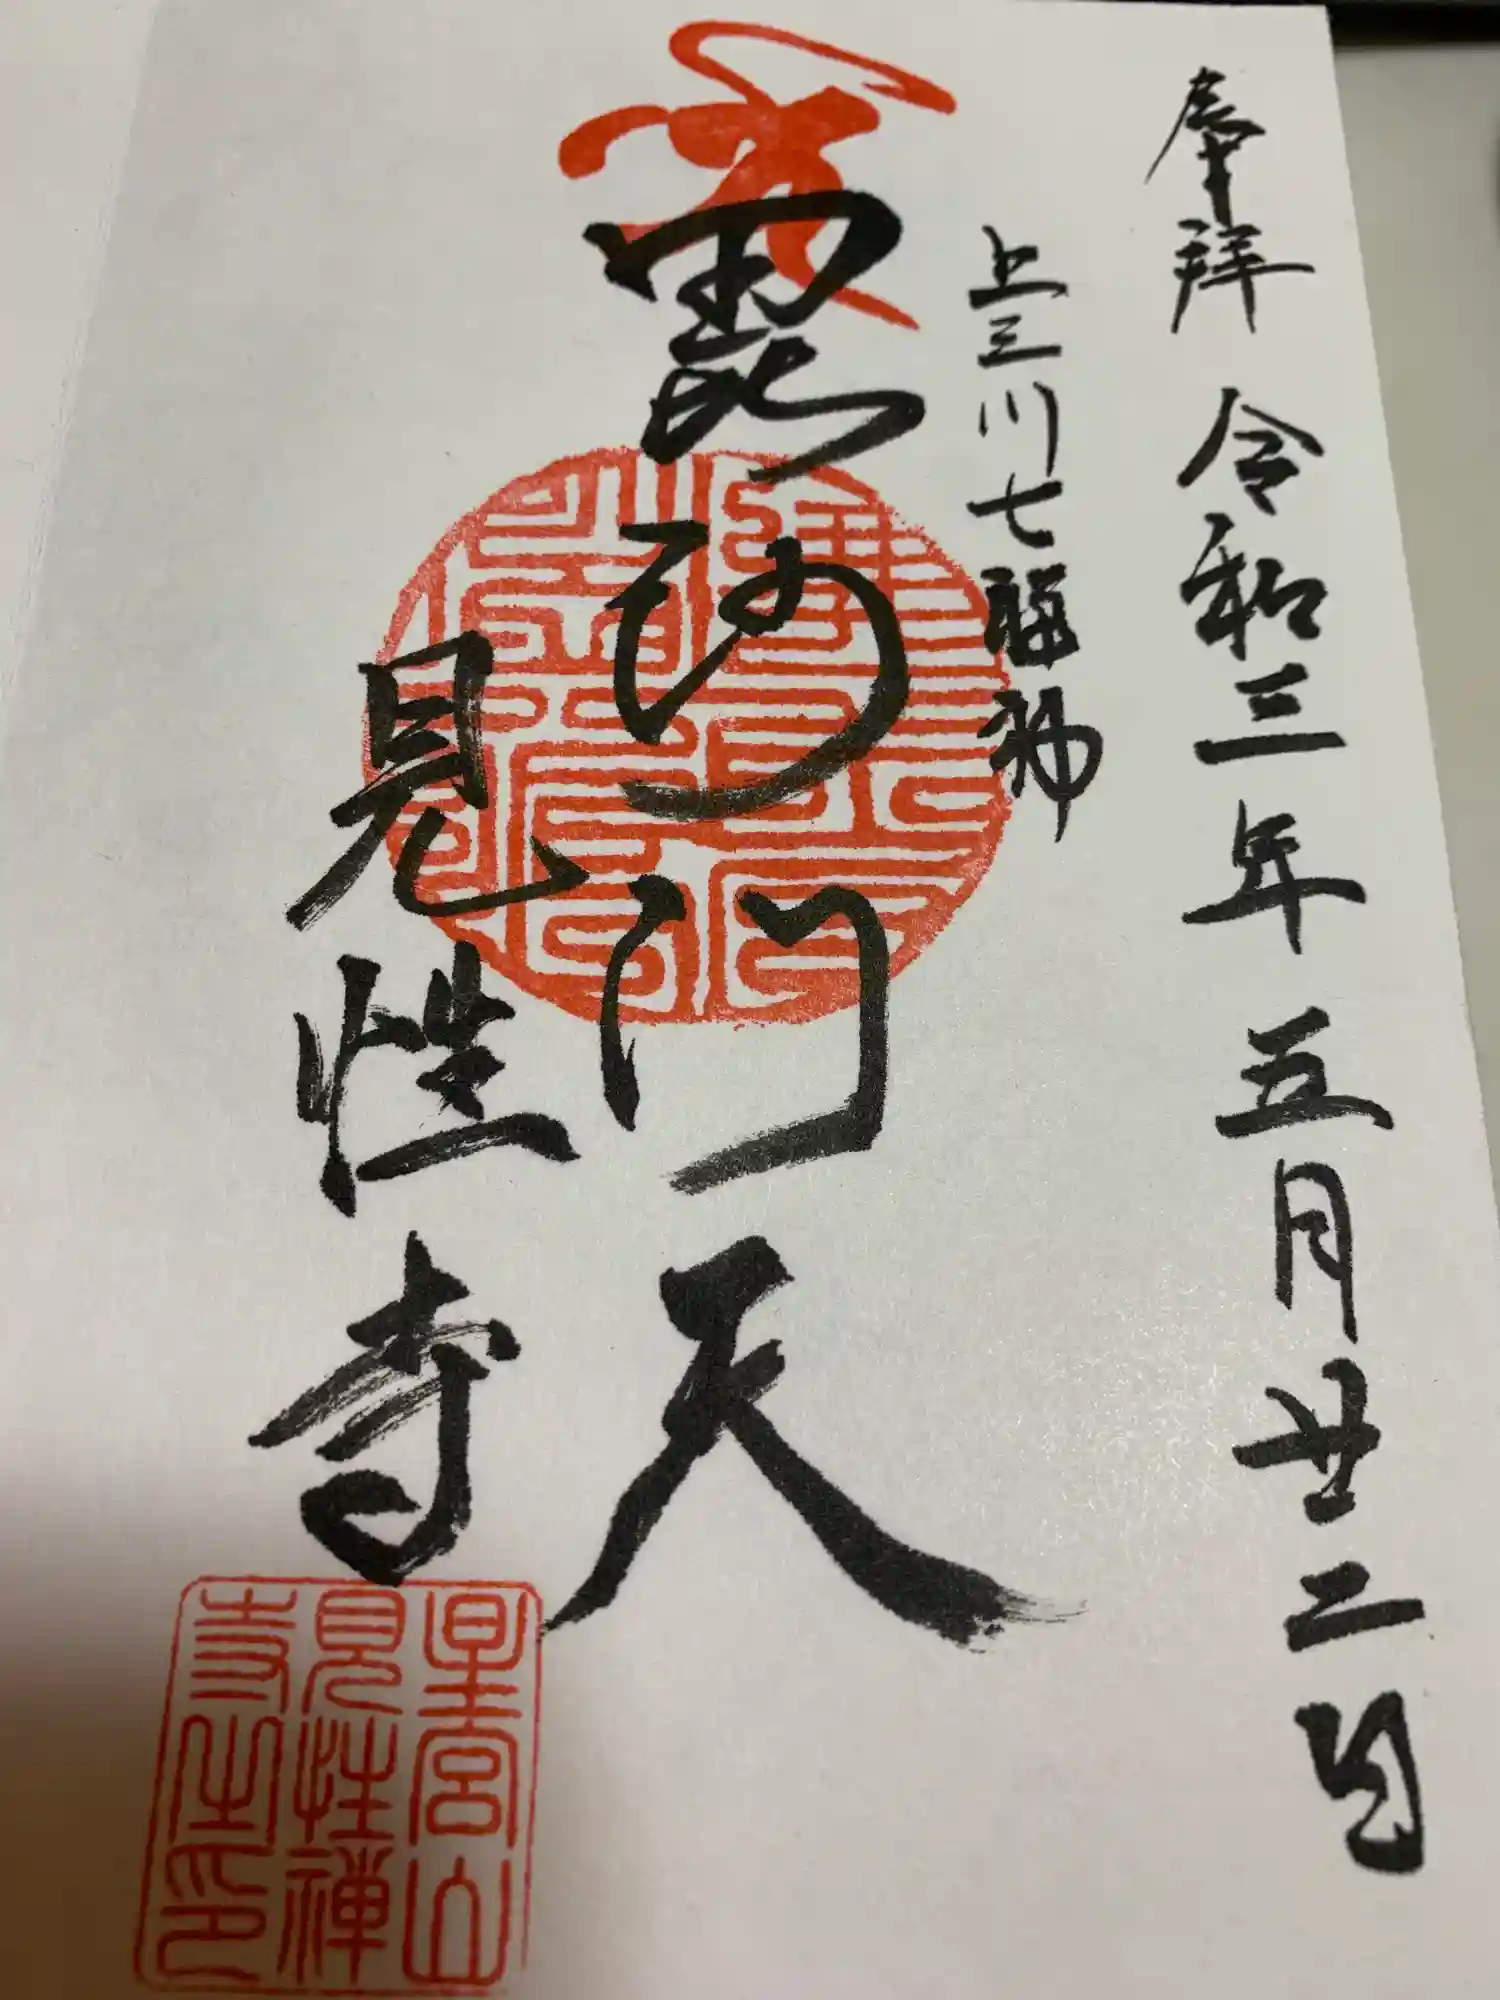 奉拝 令和三年 五月廿二日
上三川七福神
毘沙門天
見性寺
星宮山
見性禅
寺之印